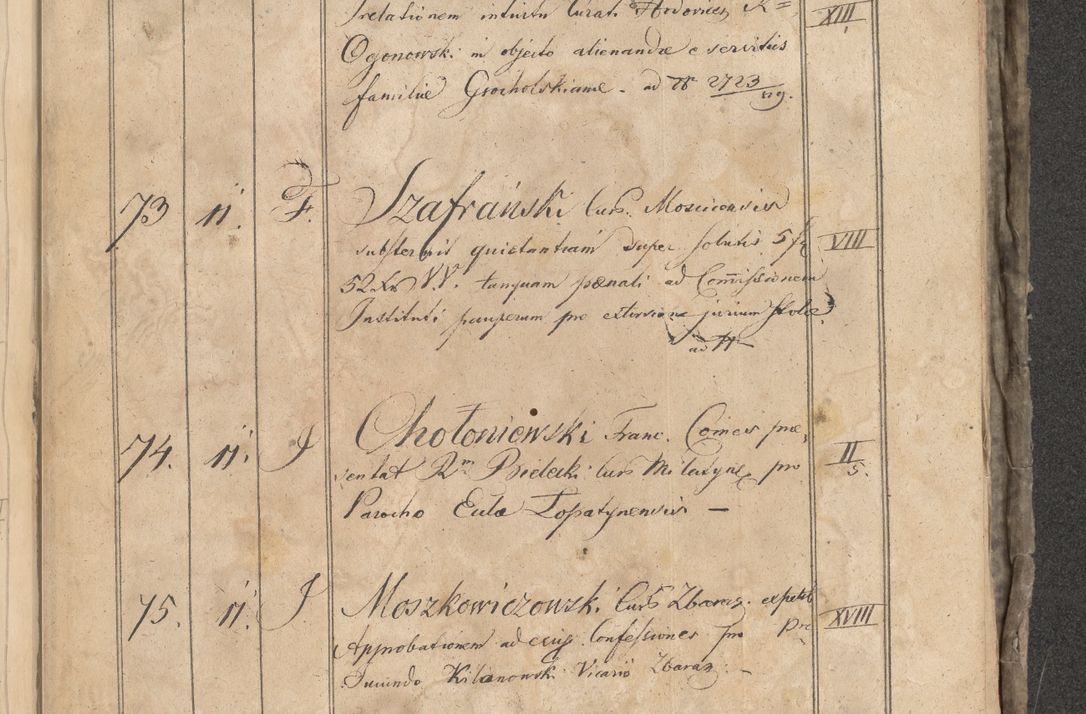 relationem intuitu Curati Hodovicens. R= XIII
Ogonowski in objecto alienandæ e servitiis
familiæ Grocholskianæ - ad N 2723/829.
73 11. F. Szafrański Cur. Moscicensis
substernit quietantiam super solutis 5 fr VIII
52 Xr V.V. tanquam pænali ad Com̄issionem
Instituti pauperum pro extorsione jurium stolæ
ad N-
74. 11. J Chołoniewski Franc. Comes præ
sentat Rm Bielecki Cur. Milatyn. pro II 5.
Parocho Eccl. Lopatynensis -
75. 11. J Moszkowiczowski Curs Zbaraz. expetit
Approbationem ad Confessiones pro Pre XVIII
Jucundo Kilanowski Vicario Zbaraz. -